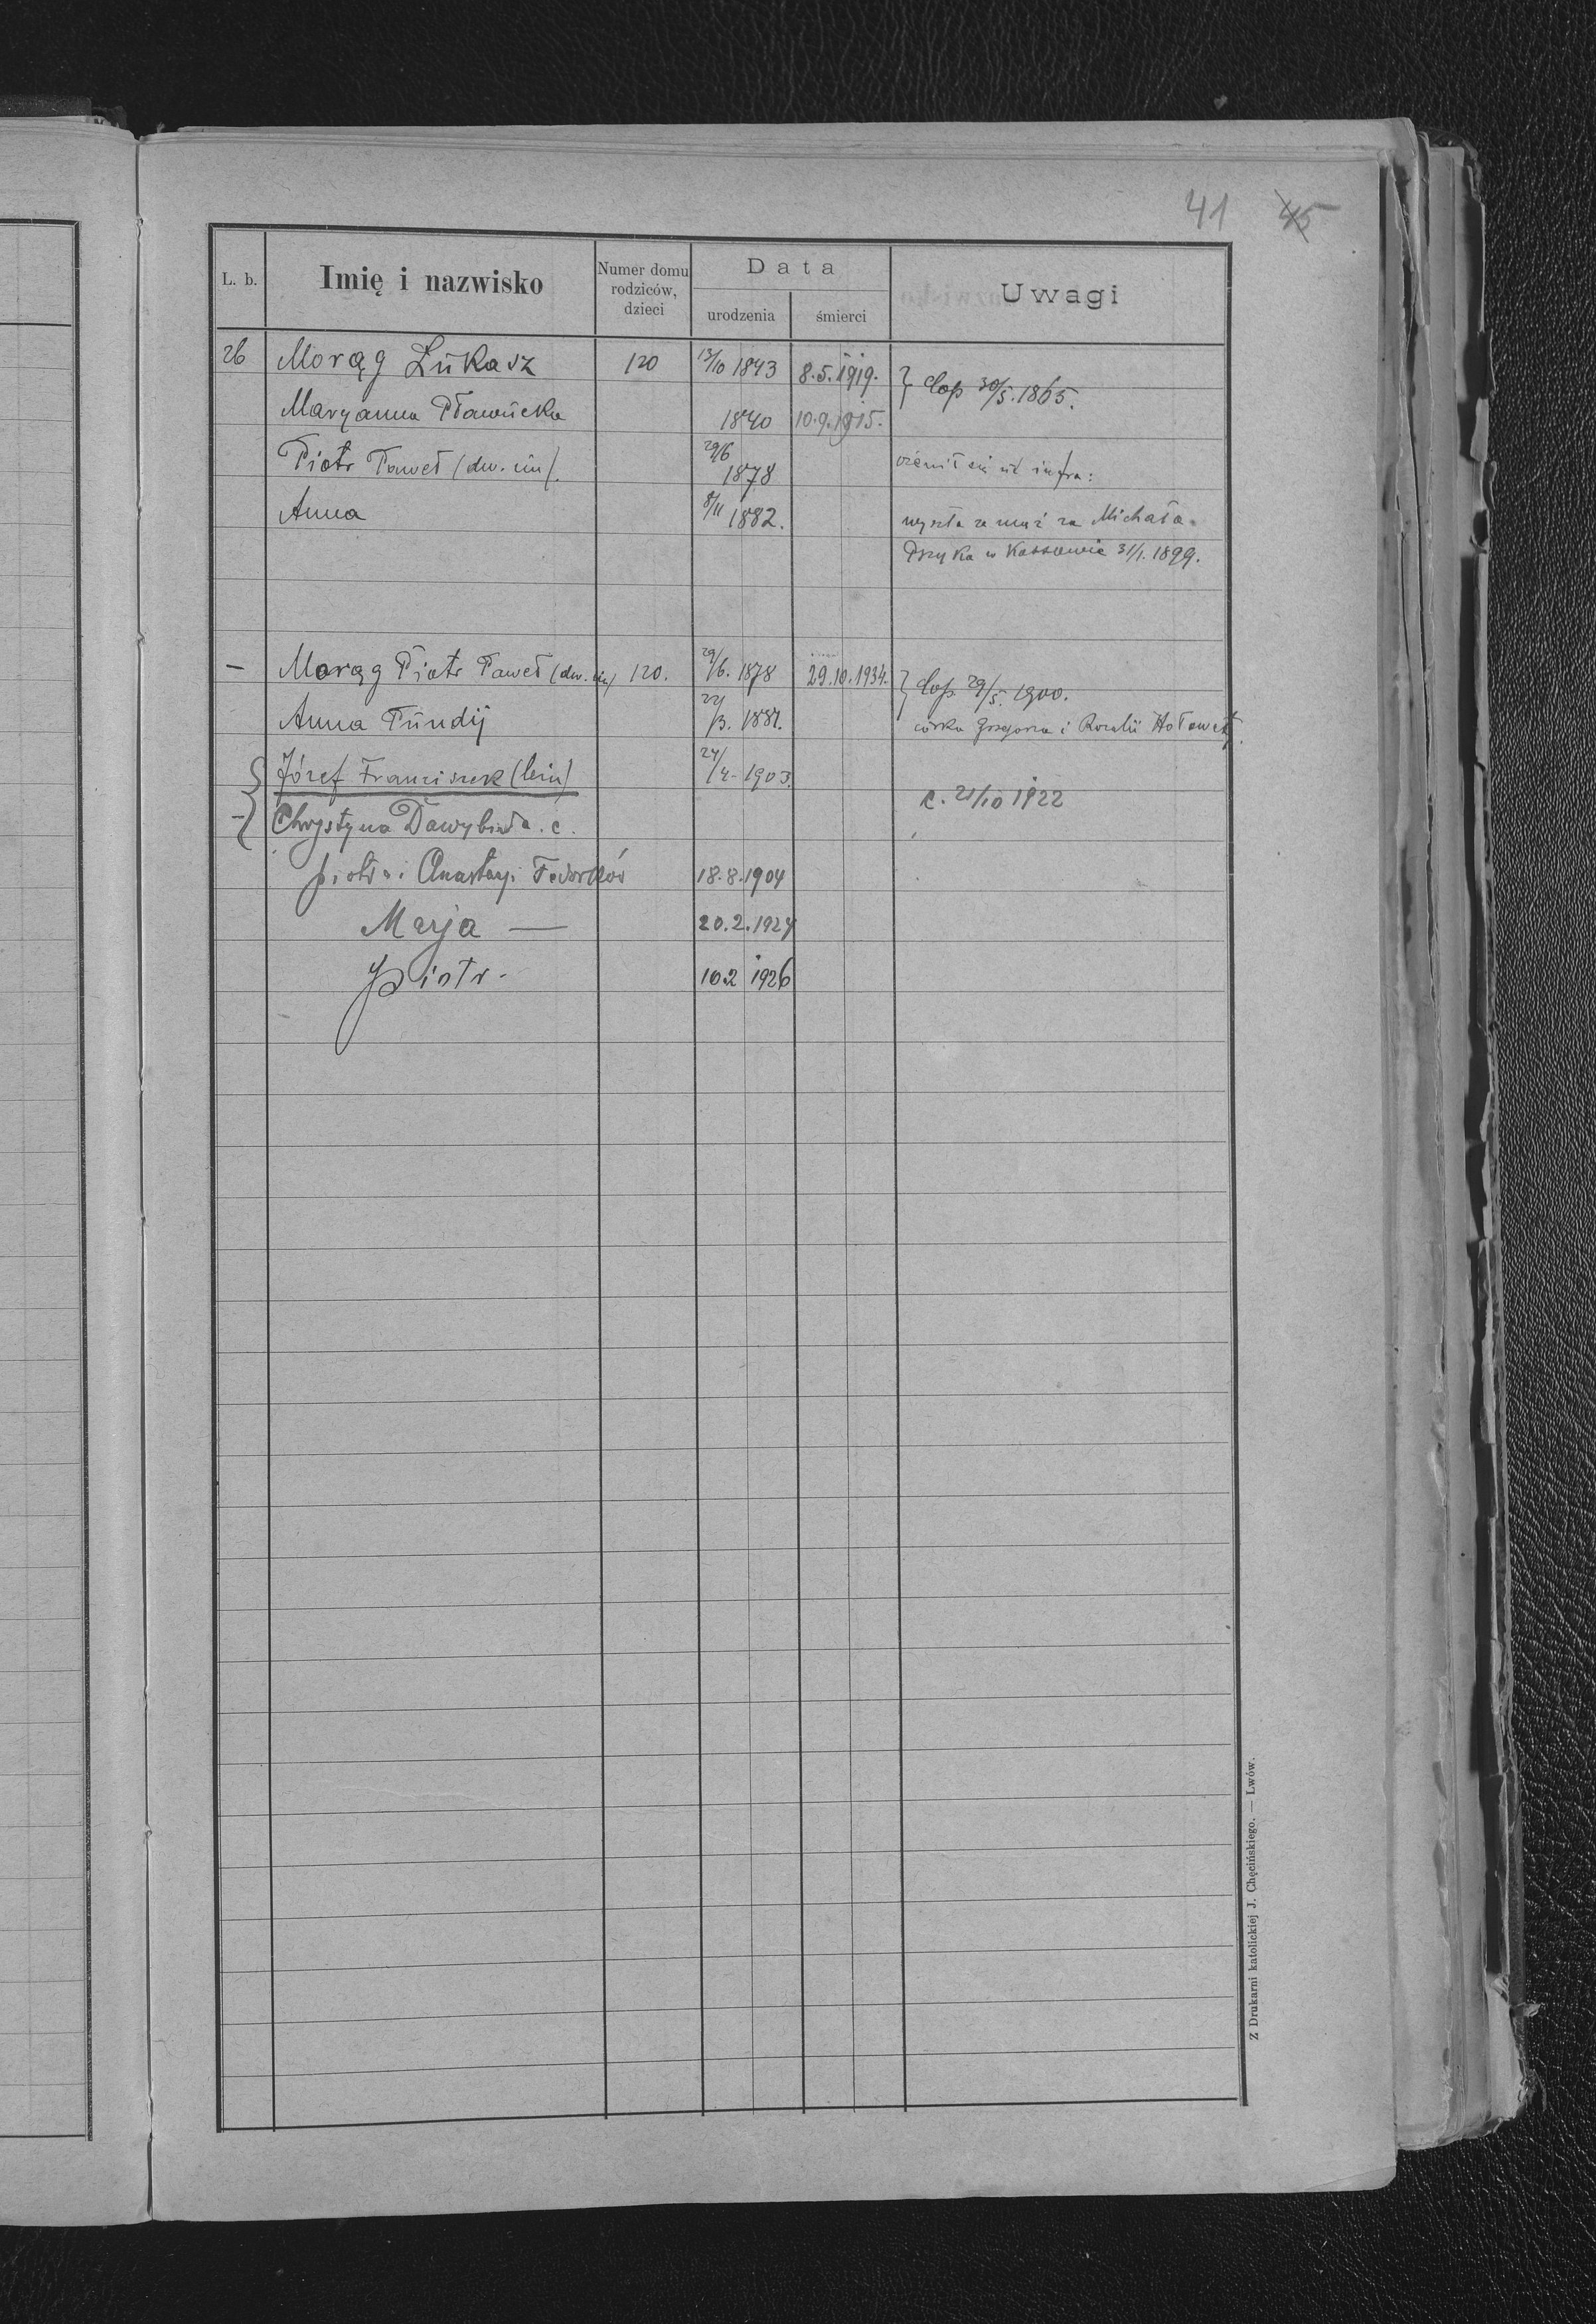 41 45
L. b. Imię i nazwisko Numer domu rodziców, dzieci Data urodzenia śmierci Uwagi
26 Morąg Łukasz 120 13/10 1843 8.5.1919. } Cop 30/5.1865.
Maryanna 1840 10.9.1915.
Piotr Paweł (dw. im). 29/6 1878 ożenił się ut infra:
Anna 8/11 1882. wyszła za mąż za Michała
w Kossowie 31/1.1899.
— Morąg Piotr Paweł (dw. im) 120. 29/6. 1878 29.10.1934. } Cop. 29/5. 1900.
Anna Fundij córka Grzegorza i Rozalii
Józef Franciszek (bin) 24/4- 1903. c. 21/10 1922
Chrystyna c.
Piotra i Anastazji 18.8.1904
Marja — 20.2.1924
Piotr - 10 2 1926
Z Drukarni katolickiej J. Chęcińskiego. — Lwów.